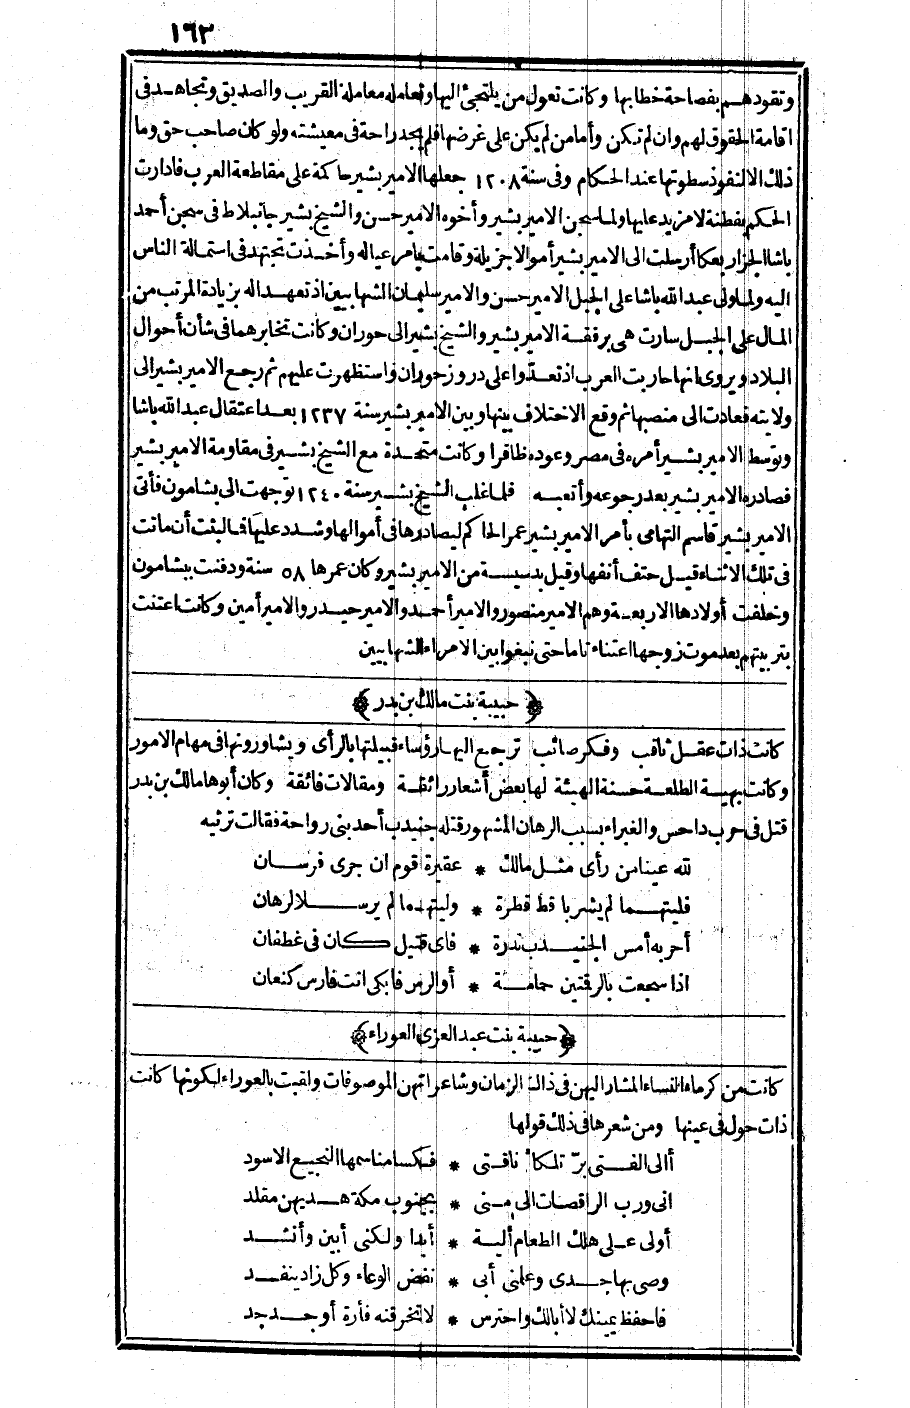 ١٦٣
وتقودهم بفصاحة خطابها وكانت تعول من يلتجئ اليها وتعامله معاملة القريب والصديق وتجاهد فى
اقامة الحقوق لهم وان لم تكن وأما من لم يكن على غرضها فلم يجد راحة فى معيشته ولو كان صاحب حق وما
ذلك الا لنفوذ سطوتها عند الحكام وفى سنة ١٢٠٨ جعلها الامير بشير حاكمة على مقاطعة العرب فادارت
الحكم بفطنة لا مزيد عليها ولما سجن الامير بشير وأخوه الامير حسن والشيخ بشير جانبلاط فى سجن أحمد
باشا الجزار بعكا أرسلت الى الامير بشير أموالا جزيلة وقامت بأمر عياله وأخذت تجتهد فى استمالة الناس
اليه ولما ولى عبد الله باشا على الجبل الامير حسن والامير سليمان الشهابيين اذ تعهد اله بزيادة المرتب من
المال على الجبل سارت هى برفقة الامير بشير والشيخ بشير الى حوران وكانت تخابرهما فى شأن أحوال
البلاد ويروى انها حاربت العرب اذ تعدوا على دروز حوران واستظهرت عليهم ثم رجع الامير بشير الى
ولايته فعادت الى منصبها ثم وقع الاختلاف بينها وبين الامير بشير سنة ١٢٣٧ بعد اعتقال عبد الله باشا
وتوسط الامير بشير أمره فى مصر وعوده ظافرا وكانت متحدة مع الشيخ بشير فى مقاومة الامير بشير
فصادره الامير بشير بعد رجوعه وأتعبه فلما غلب الشيخ بشير سنة ١٢٤٠ توجهت الى بشامون فأتى
الامير بشير قاسم التهامى بأمر الامير بشير عمر الحاكم ليصادرها فى أموالها وشدد عليها فما لبثت أن ماتت
فى تلك الاثناء قيل حتف أنفها وقيل بدسيسة من الامير بشير وكان عمرها ٥٨ سنة ودفنت ببشامون
وخلفت أولادها الاربعة وهم الامير منصور والامير أحمد والامير حيدر والامير أمين وكانت اعتنت
بتربيتهم بعد موت زوجها اعتناء تاما حتى نبغوا بين الامراء الشهابيين
﴿ حبيبة بنت مالك بن بدر ﴾
كانت ذات عقل ثاقب وفكر صائب ترجع اليها رؤساء قبيلتها بالرأى ويشاورونها فى مهام الامور
وكانت بهية الطلعة حسنة الهيئة لها بعض أشعار رائقة ومقالات فائقة وكان أبوها مالك بن بدر
قتل فى حرب داحس والغبراء بسبب الرهان المشهور قتله جنيدب أحد بنى رواحة فقالت ترثيه
لله عينا من رأى مثل مالك * عقيرة قوم ان جرى فرسان
فليتهما لم يشربا قط قطرة * وليتهما لم يرسلا لرهان
أحر به أمس الجنيدب ندرة * فاى قتيل كان فى غطفان
اذا سجعت بالرقتين حمامة * أو الرس فابكى انت فارس كنعان
﴿ حبيبة بنت عبد العزى العوراء ﴾
كانت من كرماء النساء المشار اليهن فى ذالك الزمان وشاعراتهن الموصوفات ولقبت بالعوراء لكونها كانت
ذات حول فى عينها ومن شعرها فى ذلك قولها
أالى الفتى برّ تلكأ ناقتى * فكسا مناسمها النجيع الاسود
انى ورب الراقصات الى منى * بجنوب مكة هديهن مقلد
أولى على هلك الطعام ألية * أبدا ولكنى أبين وأنشد
وصى بها جدى وعلمنى أبى * نفض الوعاء وكل زاد ينفد
فاحفظ يمينك لا أبالك واحترس * لا تخرقنه فأرة أو جدجد